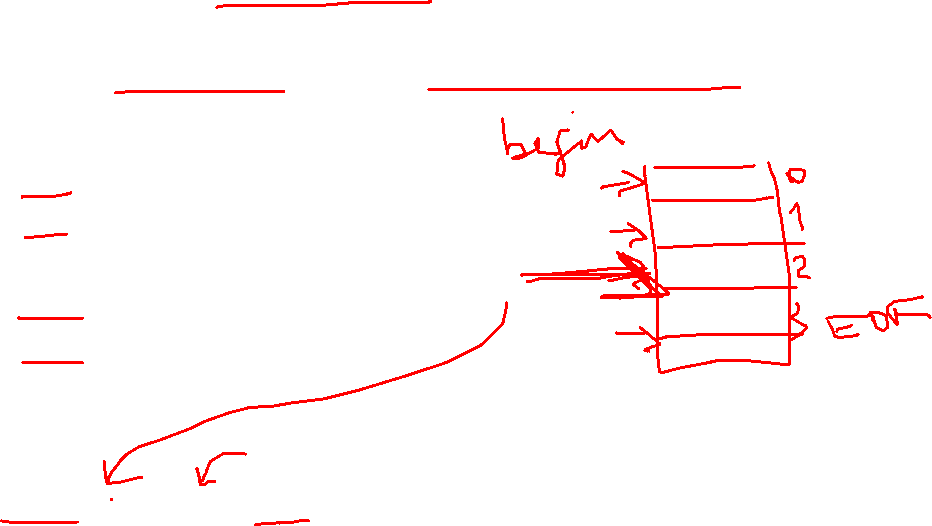 begin
0
1
2
3 EOF